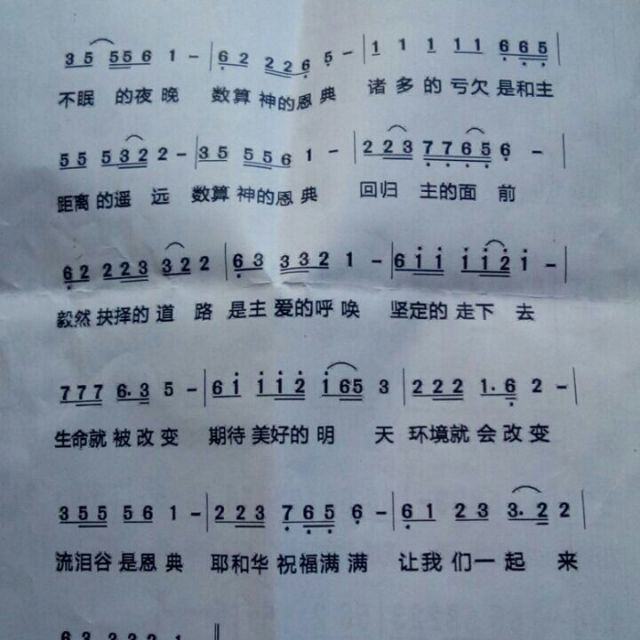 35 556 1 - | 62 226 5 - | 1 1 1 11 665 |
不眠 的夜 晚 数算 神的恩 典 诸 多 的 亏欠 是和主
55 5322 - | 35 556 1 - | 223 7765 6 - |
距离 的遥 远 数算 神的恩 典 回归 主的面 前
62 223 322 | 63 3321 - | 611 1121 - |
毅然 抉择的 道 路 是主 爱的呼 唤 坚定的 走下 去
777 6.3 5 - | 61 112 165 3 | 222 1.6 2 - |
生命就 被改变 期待 美好的 明 天 环境就 会改变
355 56 1 - | 223 765 6 - | 61 23 3.22 |
流泪谷 是恩典 耶和华 祝福满满 让我 们一 起 来
63 3321 ‖